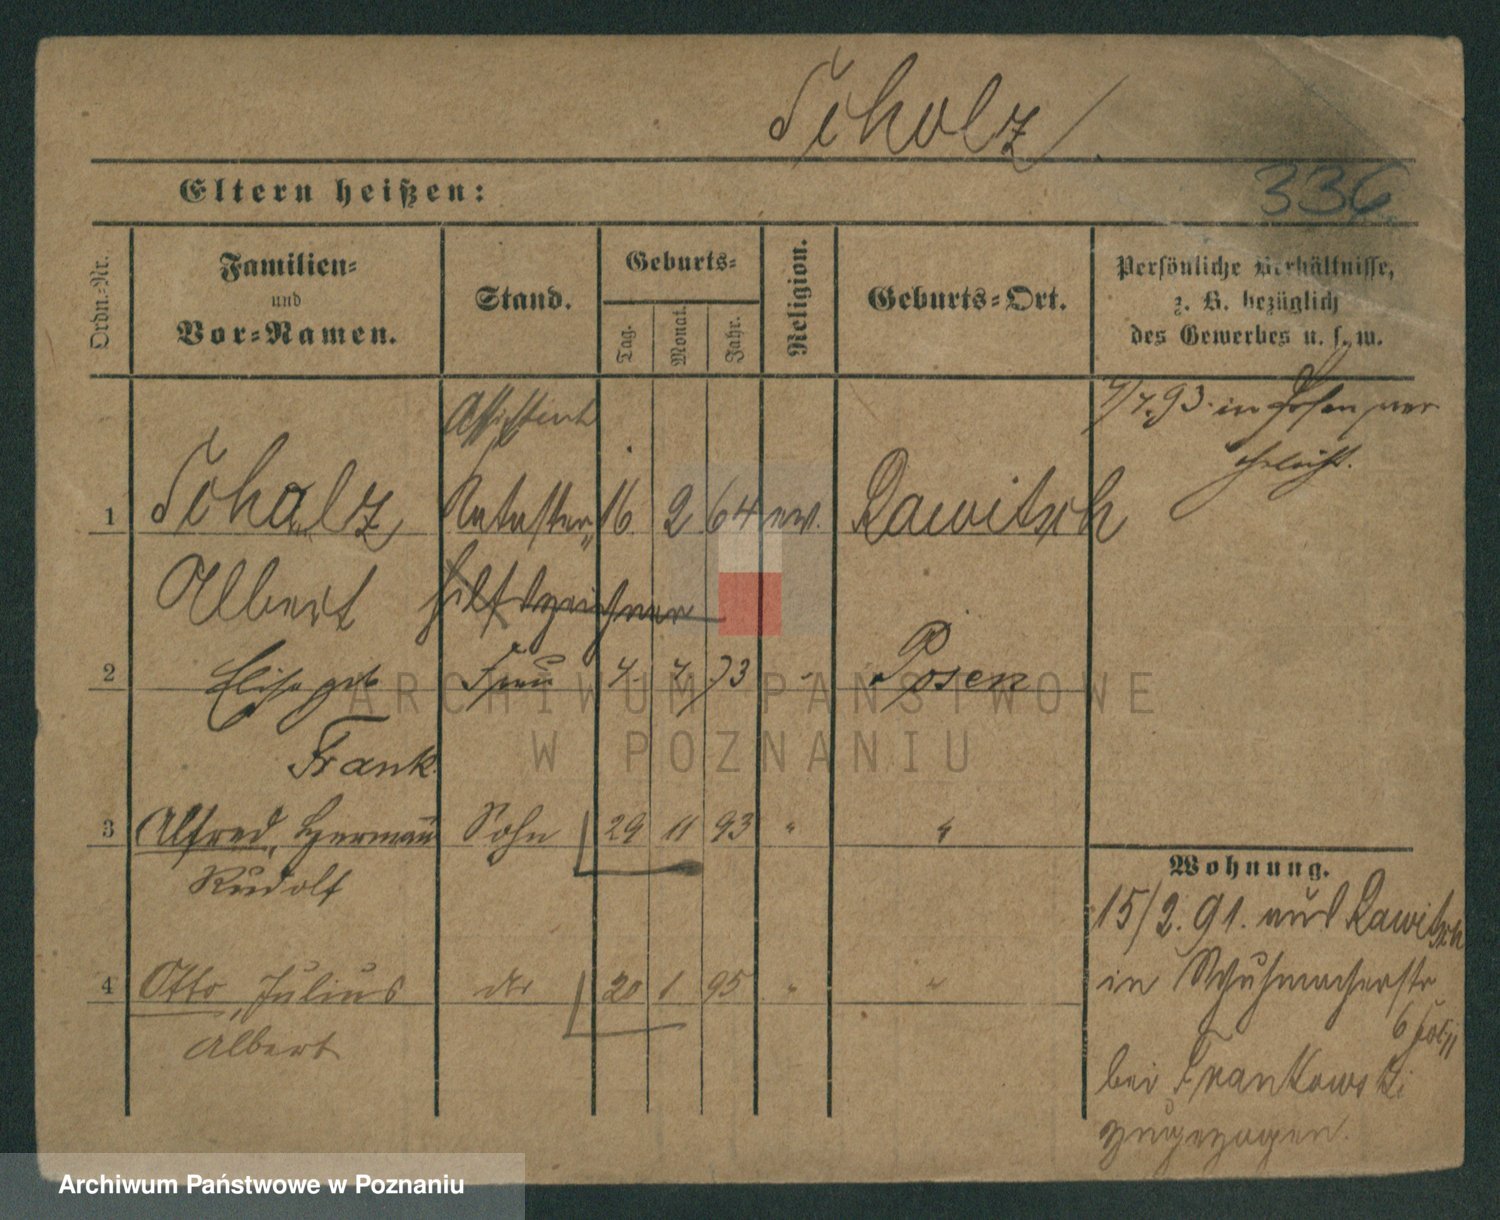 Scholz
336
Eltern heißen:
Ordn.-Nr.
Familien-
und
Vor-Namen.
Stand.
Geburts-
Tag.
Monat.
Jahr.
Religion.
Geburts-Ort.
Persönliche Verhältnisse,
z. B. bezüglich
des Gewerbes u. s. w.
4/7.93. in Posen ver
ehelicht.
Assistent
1 Scholz Kataster 16. 2 64 ev. Rawitsch
Albert Hilfszeichner
2 Elise geb Frau 4. 7. 73 " Posen
Frank
3 Alfred, Hermann Sohn 29 11 93 " "
Rudolf
4 Otto, Julius dto 20 1 95 " "
Albert
Wohnung.
15/2.91. aus Rawitsch
in Schuhmacherstr
6
bei Frankowski
zugezogen.
ARCHIWUM PAŃSTWOWE
W POZNANIU
Archiwum Państwowe w Poznaniu